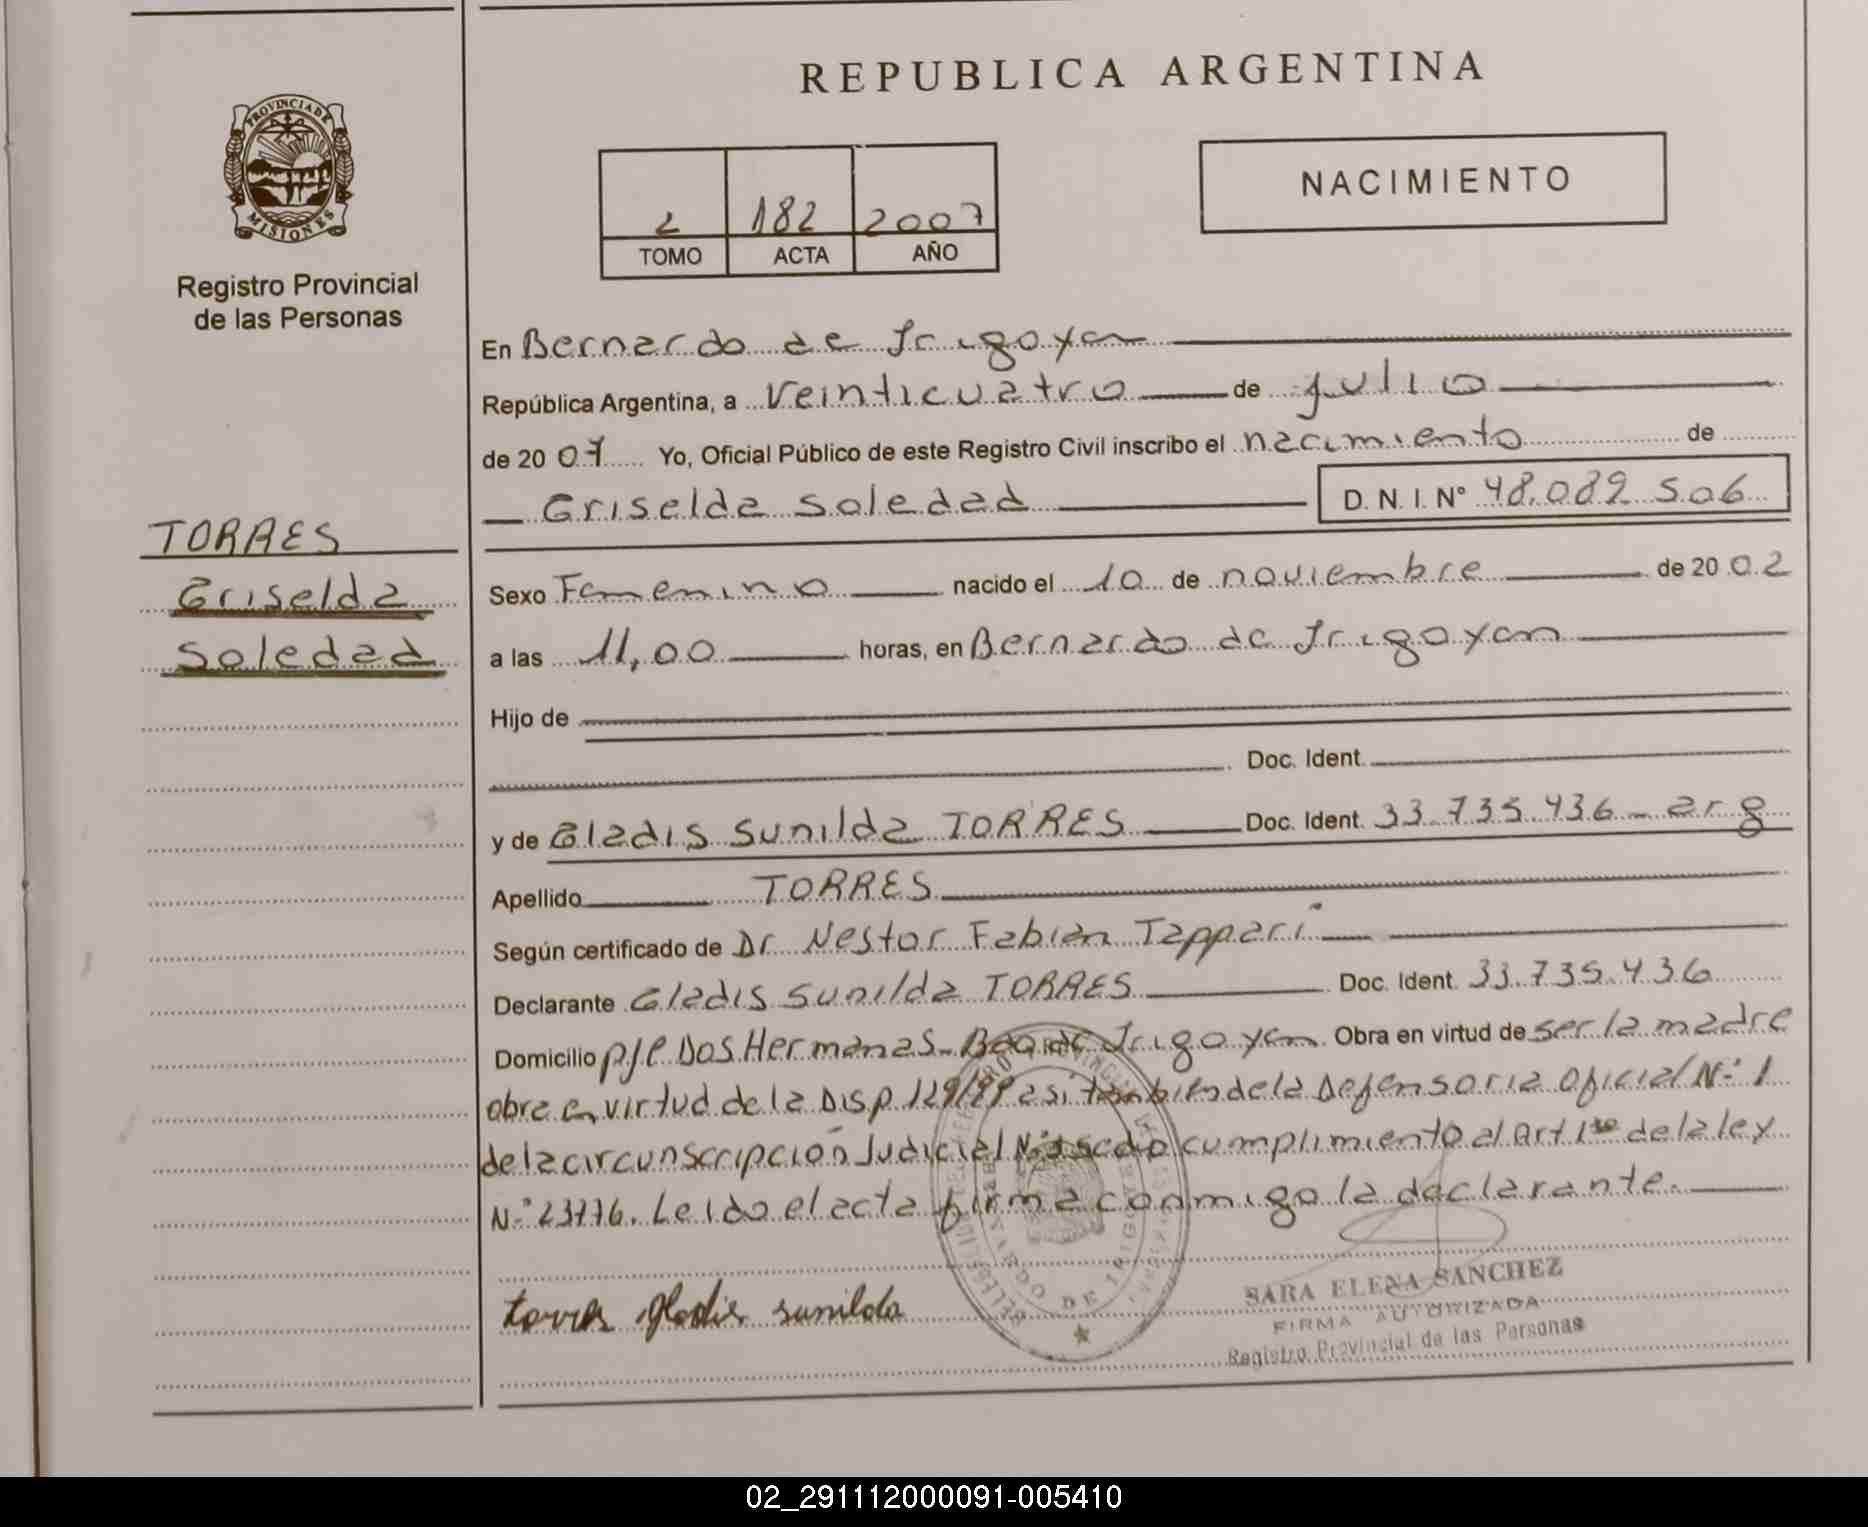 REPUBLICA ARGENTINA
PROVINCIA DE MISIONES
Registro Provincial
de las Personas
2 182 2007
TOMO ACTA AÑO
NACIMIENTO
TORRES
Griselda
Soledad
En Bernardo de Irigoyen
República Argentina, a veinticuatro de julio
de 2007 Yo, Oficial Público de este Registro Civil inscribo el nacimiento de
Griselda Soledad D. N. I. N° 48.089.506
Sexo Femenino nacido el 10 de noviembre de 2002
a las 11,00 horas, en Bernardo de Irigoyen
Hijo de
Doc. Ident.
y de Gladis Sunilda TORRES Doc. Ident. 33.735.436 - arg
Apellido TORRES
Según certificado de Dr Nestor Fabian Tappari
Declarante Gladis Sunilda TORRES Doc. Ident. 33.735.436
Domicilio pje Dos Hermanas - Bdo de Irigoyen Obra en virtud de ser la madre
obra en virtud de la Disp. 129/99 asi tambien de la Defensoria Oficial N° 1
de la circunscripción Judicial cumplimiento al Art 1 de la ley
N° 23776. Leido el acta firma conmigo la declarante.
torres gladis sunilda
SARA ELENA SANCHEZ
FIRMA AUTORIZADA
Registro Provincial de las Personas
02_291112000091-005410